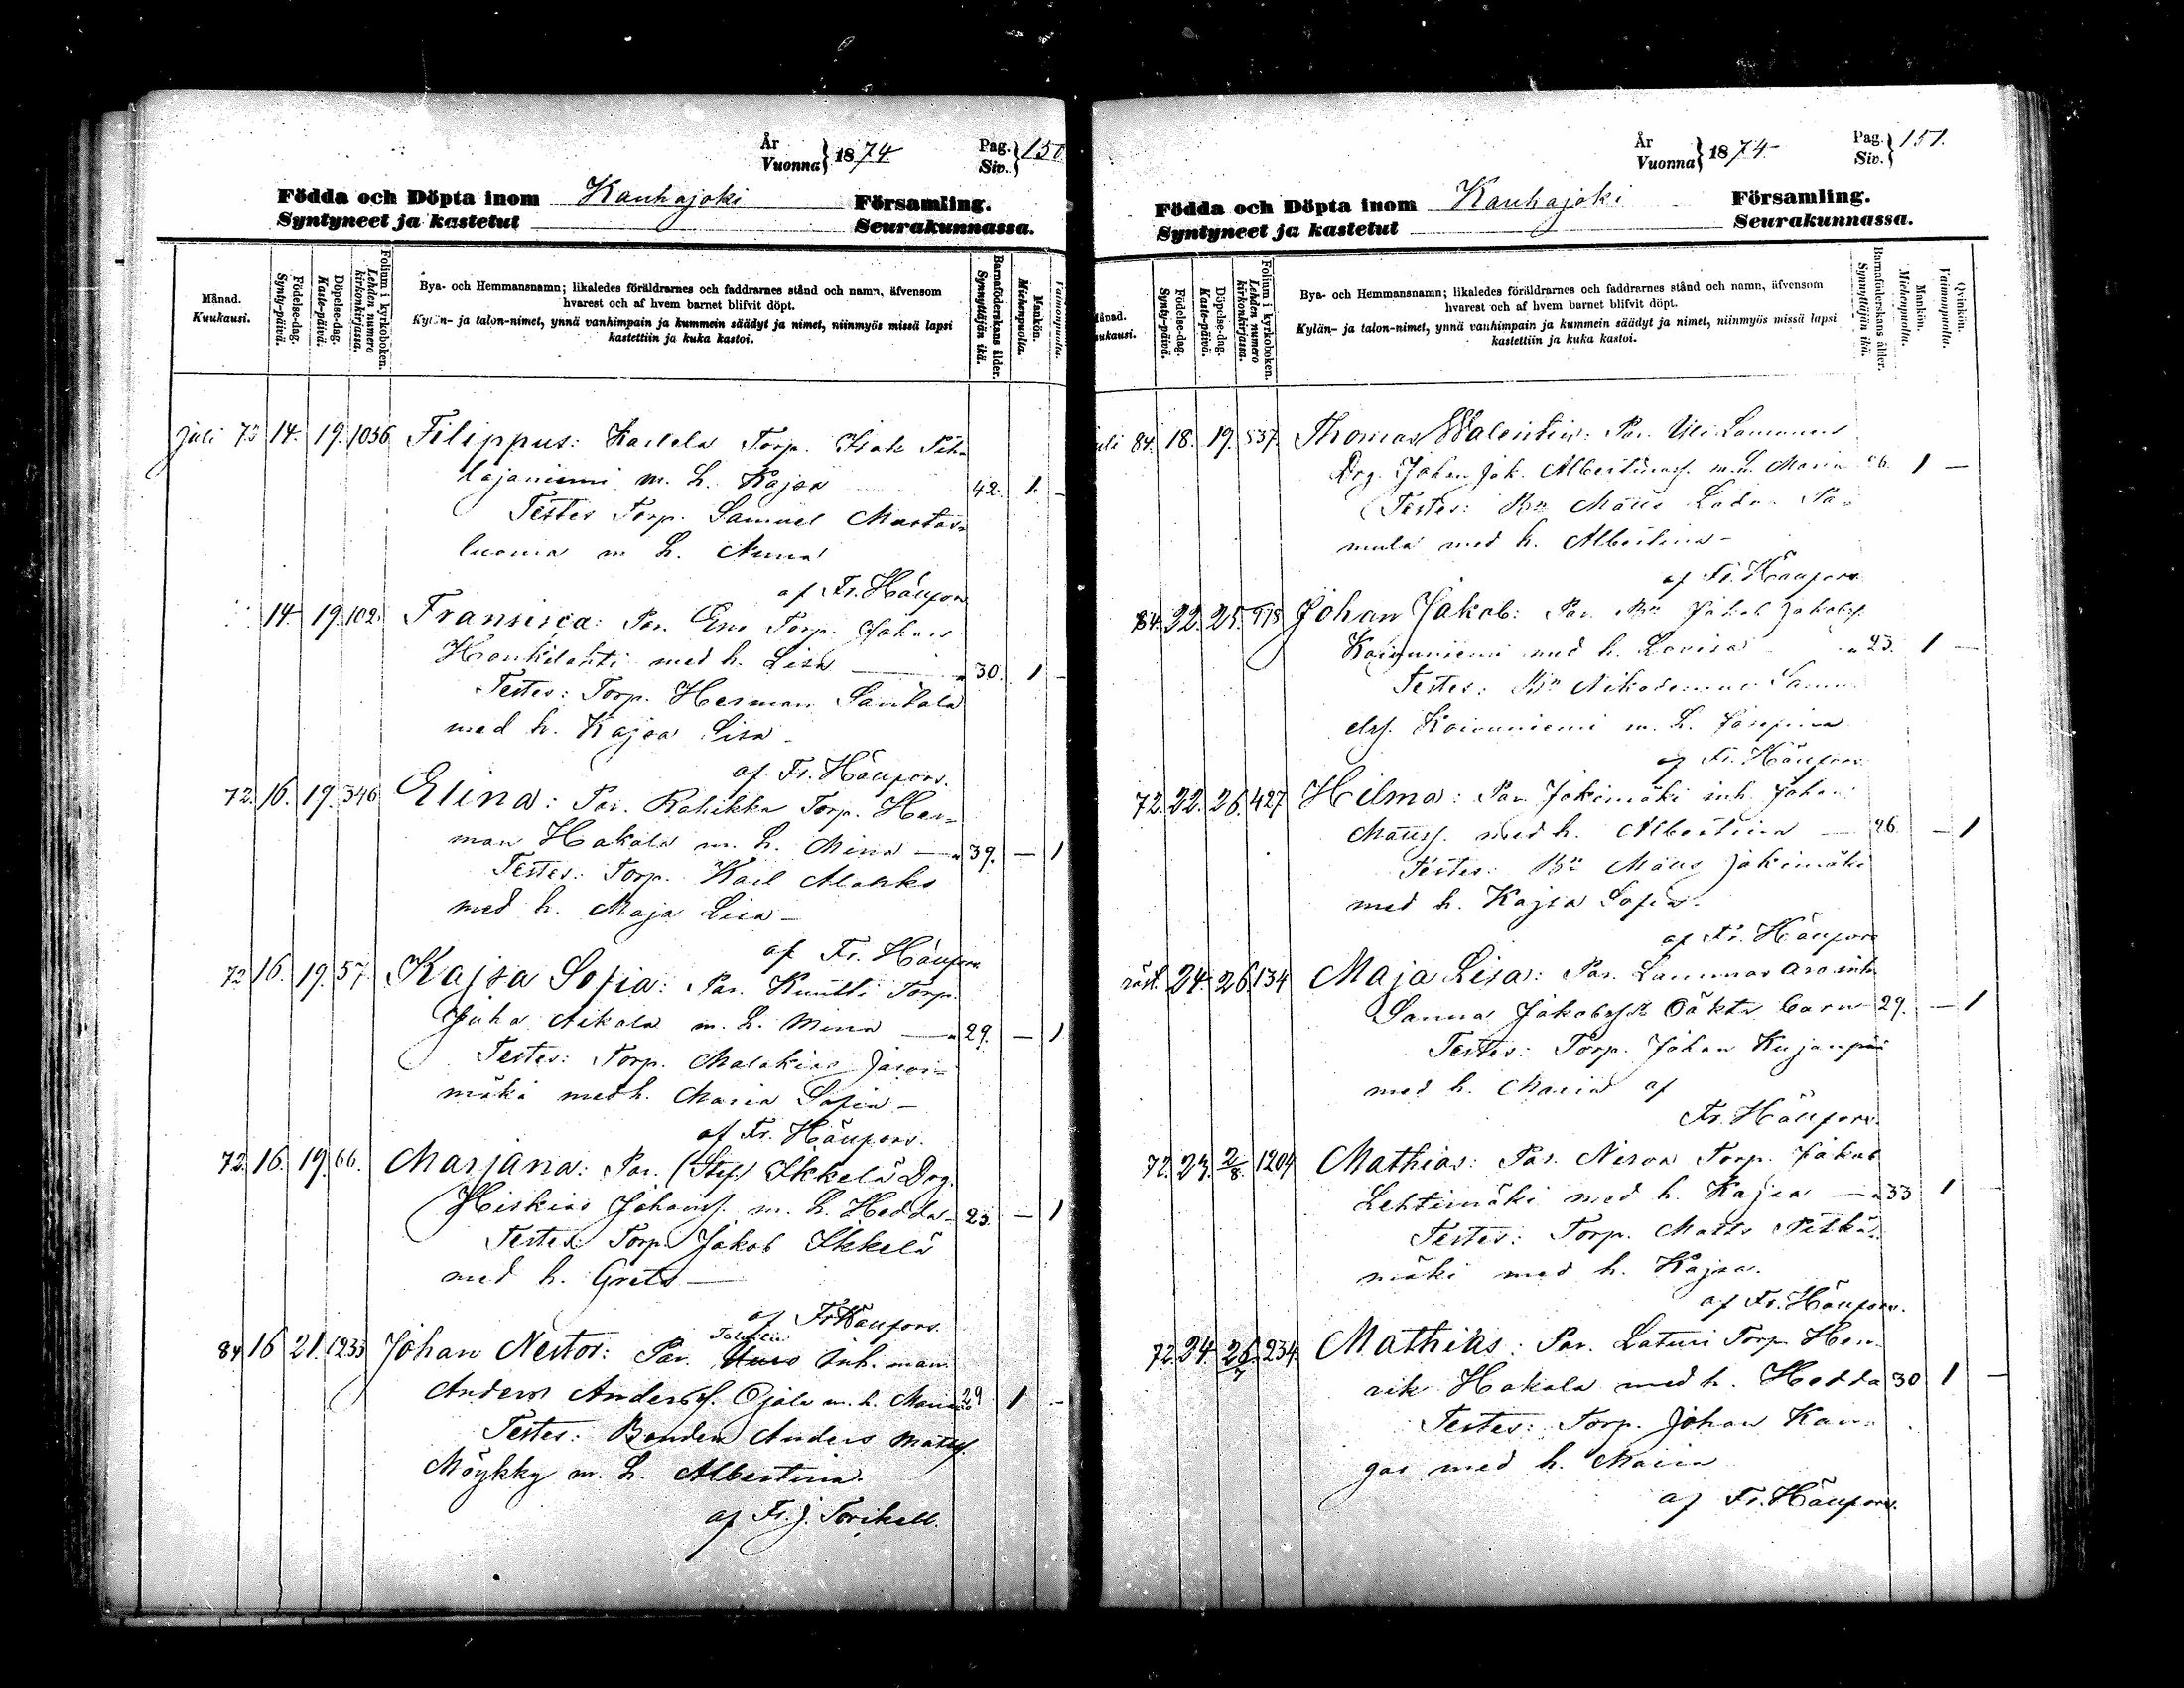 År
Vuonna } 1874.
Pag.
Siv. } 150
Födda och Döpta inom Kauhajoki Församling.
Syntyneet ja kastetut Seurakunnassa.
Månad.
Kuukausi.
Födelse-dag.
Synty-päivä.
Döpelse-dag.
Kaste-päivä.
Folium i kyrkoboken.
Lehden numero kirkonkirjassa.
Bya- och Hemmansnamn; likaledes föräldrarnes och faddrarnes stånd och namn, äfvensom
hvarest och af hvem barnet blifvit döpt.
Kylän- ja talon-nimet, ynnä vanhimpain ja kummein säädyt ja nimet, niinmyös missä lapsi
kastettiin ja kuka kastoi.
Barnaföderskans ålder.
Synnyttäjän ikä.
Mankön.
Miehenpuolta.
Vaimonpuolta.
Juli 73 14. 19. 1036 Filippus: Torp. Isak Pih-
lajaniemi m. h. Kajsa 42. 1. -
Testes Torp. Samuel Mustas-
luoma m h. Anna
af Fr. Häupors
14. 19. 102 Fransisca: Par. Torp. Johan
Honkilahti med h. Lisa — 30. 1 -
Testes: Torp. Herman Santala
med h. Kajsa Lisa -
af Fr. Häupors.
72. 16. 19. 346 Elina: Par. Rahikka Torp. Her-
man Hakala m. h. Mina — 39. — 1
Testes: Torp. Karl
med h. Maja Lisa -
af Fr. Häupors
72 16. 19. 57. Kajsa Sofia: Par. Knutti Torp.
Juha Aikala m. h. Mina — 29. — 1
Testes: Torp. Malakias
mäki med h. Maria Sofia -
af Fr. Häupors.
72. 16. 19. 66. Marjana: Par. (Stef) Ikkelä Drg.
Hiskias Johanss. m. h. Hedda - 23. — 1
Testes: Torp. Jakob Ikkelä
med h. Greta —
af Fr. Häupors.
84 16 21. 1233 Johan Nestor: Par. Inh. man
Anders Anderss. Ojala m. h. Maria 29 1 -
Testes: Bonden Anders Matss.
Möykky m. h. Albertina.
af Fr. J. Torikell.
År
Vuonna } 1874-
Pag.
Siv. } 151.
Födda och Döpta inom Kauhajoki Församling.
Syntyneet ja kastetut Seurakunnassa.
Månad.
Kuukausi.
Födelse-dag.
Synty-päivä.
Döpelse-dag.
Kaste-päivä.
Folium i kyrkoboken.
Lehden numero kirkonkirjassa.
Bya- och Hemmansnamn; likaledes föräldrarnes och faddrarnes stånd och namn, äfvensom
hvarest och af hvem barnet blifvit döpt.
Kylän- ja talon-nimet, ynnä vanhimpain ja kummein säädyt ja nimet, niinmyös missä lapsi
kastettiin ja kuka kastoi.
Barnaföderskans ålder.
Synnyttäjän ikä.
Mankön.
Miehenpuolta.
Qvinkön.
Vaimonpuolta.
84. 18. 19. 537. Thomas Walentin: Par. Lammas
Drg. Johan Jak. m. h. Maria 26. 1 —
Testes: Bn Matts
med h. Albertina -
af Fr. Häupors
84. 22. 25. 978 Johan Jakob: Par. Bn Jakob Jakobss.
Koivuniemi med h. Lovisa 23. 1 —
Testes: Bn Nikodemus Samu-
elss. Koivuniemi m. h. Josepina
af Fr. Häupors
72. 22. 26. 427 Hilma: Par. Jokimäki inh. Johan
Matss. med h. Albertina — 26 — 1
Testes: Bn Matts Jokimäki
med h. Kajsa Sofia.
af Fr. Häupors
24. 26. 134 Maja Lisa: Par. Lammas
Sanna Jakobsdr oäkta barn 29. — 1
Testes: Torp. Johan Kujanpää
med h. Maria af
Fr. Häupors.
72. 23. 2/8. 1204 Mathias: Par. Nirva Torp. Jakob
Lehtimäki med h. Kajsa — 33 1 —
Testes: Torp. Matts Pitkä-
mäki med h. Kajsa.
af Fr. Häupors.
72. 24. 26/7. 234. Mathias: Par. Laturi Torp. Hen-
rik Hakala med h. Hedda 30 1 —
Testes: Torp. Johan Kan-
gas med h. Maria
af Fr. Häupors.